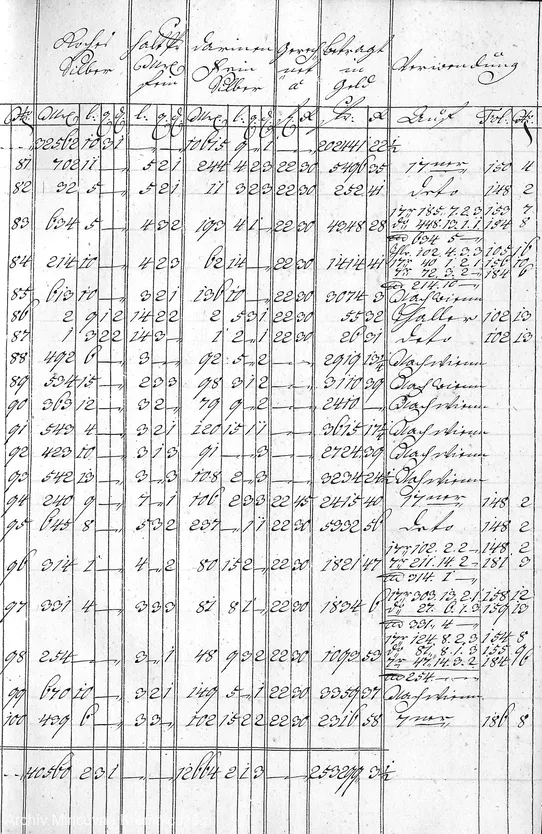 Roches Silber | halt pr Mrk fein | darinen fein Silber | Gerechnet à | betragt in Geld | Verwendung
No | Mrk. l. q. d. | l. q. d. | Mrk. l. q. d. | f. x | fr. x | Auf | Fol. No
32562 10 3 1 10615 9 „ 1 202441 22½
81 702 11 — 5 2 1 244 4 2 3 22 30 5496 35 17ner 150 4
82 32 5 — 5 2 1 11 3 2 3 22 30 252 41 deto 148 2
17r 185. 7. 2. 3 153 7
83 634 5 — 4 3 2 193 4 1 — 22 30 4348 28 do 448. 13. 1. 1 154 8
634 5 —
102. 4. 3. 3 105 16
84 214 10 — 4 2 3 62 14 — 22 30 1414 41 17r 40. 1. 2. 1 156 10
7r 72. 3. 2 — 184 6
214. 10 —
85 613 10 — 3 2 1 136 10 — 22 30 3074 3 Nach wienn
86 2 9 1 2 14 2 2 2 5 3 1 22 30 55 32 Thaller 102 13
87 1 3 2 2 14 3 — 1 2 „ 1 22 30 26 31 deto 102 13
88 492 6 — 3 — 92 5 „ 2 2919 13½ Nach wienn
89 534 15 — 2 3 3 98 3 1 2 3110 39 Nach wienn
90 363 12 — 3 2 „ 79 9 „ 2 2410 — Nach wienn
91 543 4 3 2 1 120 15 1 1 3615 17½ Nach wienn
92 423 10 3 1 3 91 — 3 2724 39 Nach wienn
93 542 13 3 „ 3 108 2 „ 3 3234 24½ Nach wienn
94 240 9 — 7 „ 1 106 2 3 3 22 45 2415 40 17ner 148 2
95 645 8 — 5 3 2 237 „ 1 1 22 30 5332 56 deto 148 2
17r 102. 2. 2 — 148 2
96 314 1 4 „ 2 80 15 2 „ 22 30 1821 47 7r 211. 14. 2 — 181 3
314. 1 —
17r 303. 13. 2. 1 158 12
97 331 4 — 3 3 3 81 8 1 „ 22 30 1834 6 do 27. 6. 1. 3 159 13
331. 4 —
17r 124. 8. 2. 3 154 8
do 81. 8. 1. 3 155 9
98 254 — 3 „ 1 48 9 3 2 22 30 1093 53 7r 47. 14. 3. 2 184 16
254 —
99 670 10 — 3 2 1 149 5 „ 1 22 30 3359 37 Nach wienn
100 439 6 — 3 3 „ 102 15 2 2 22 30 2316 58 7ner 186 8
40560 2 3 1 12664 2 1 3 253277 3½